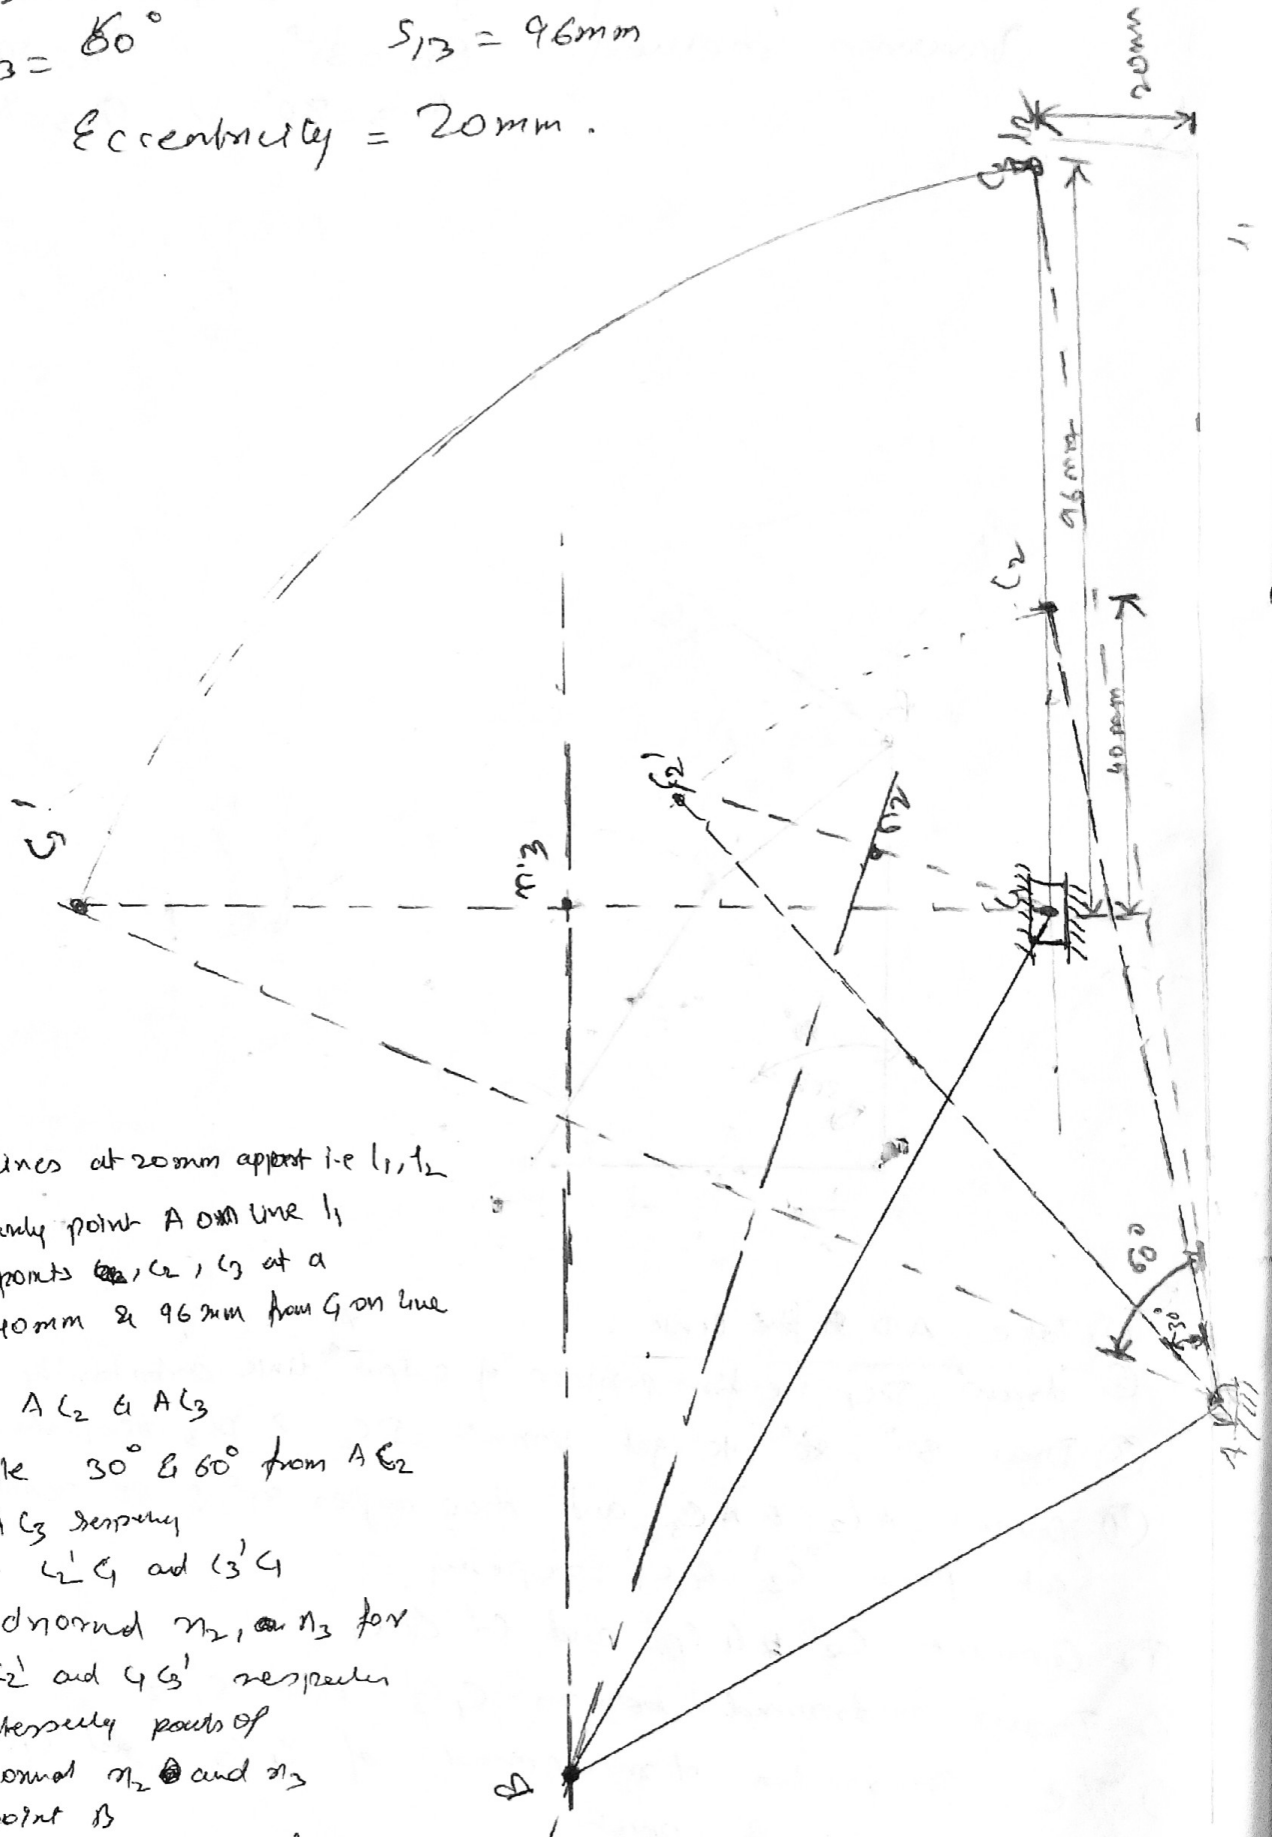 3 = 60° S13 = 96mm
Eccentricity = 20mm.
20mm
l2
C3
l1
96mm
C2
40mm
C2'
n2
C3'
n3
C1
60
30°
A
B
ines at 20mm appart i.e l1, l2
point A on line l1
points , C2, C3 at a
40mm & 96mm from C1 on line
AC2 & AC3
le 30° & 60° from AC2
C3 respetvely
C2'C1 and C3'C1
dnormal n2, n3 for
C2' and C1C3' respecter
points of
ormal n2 and n3
oint B